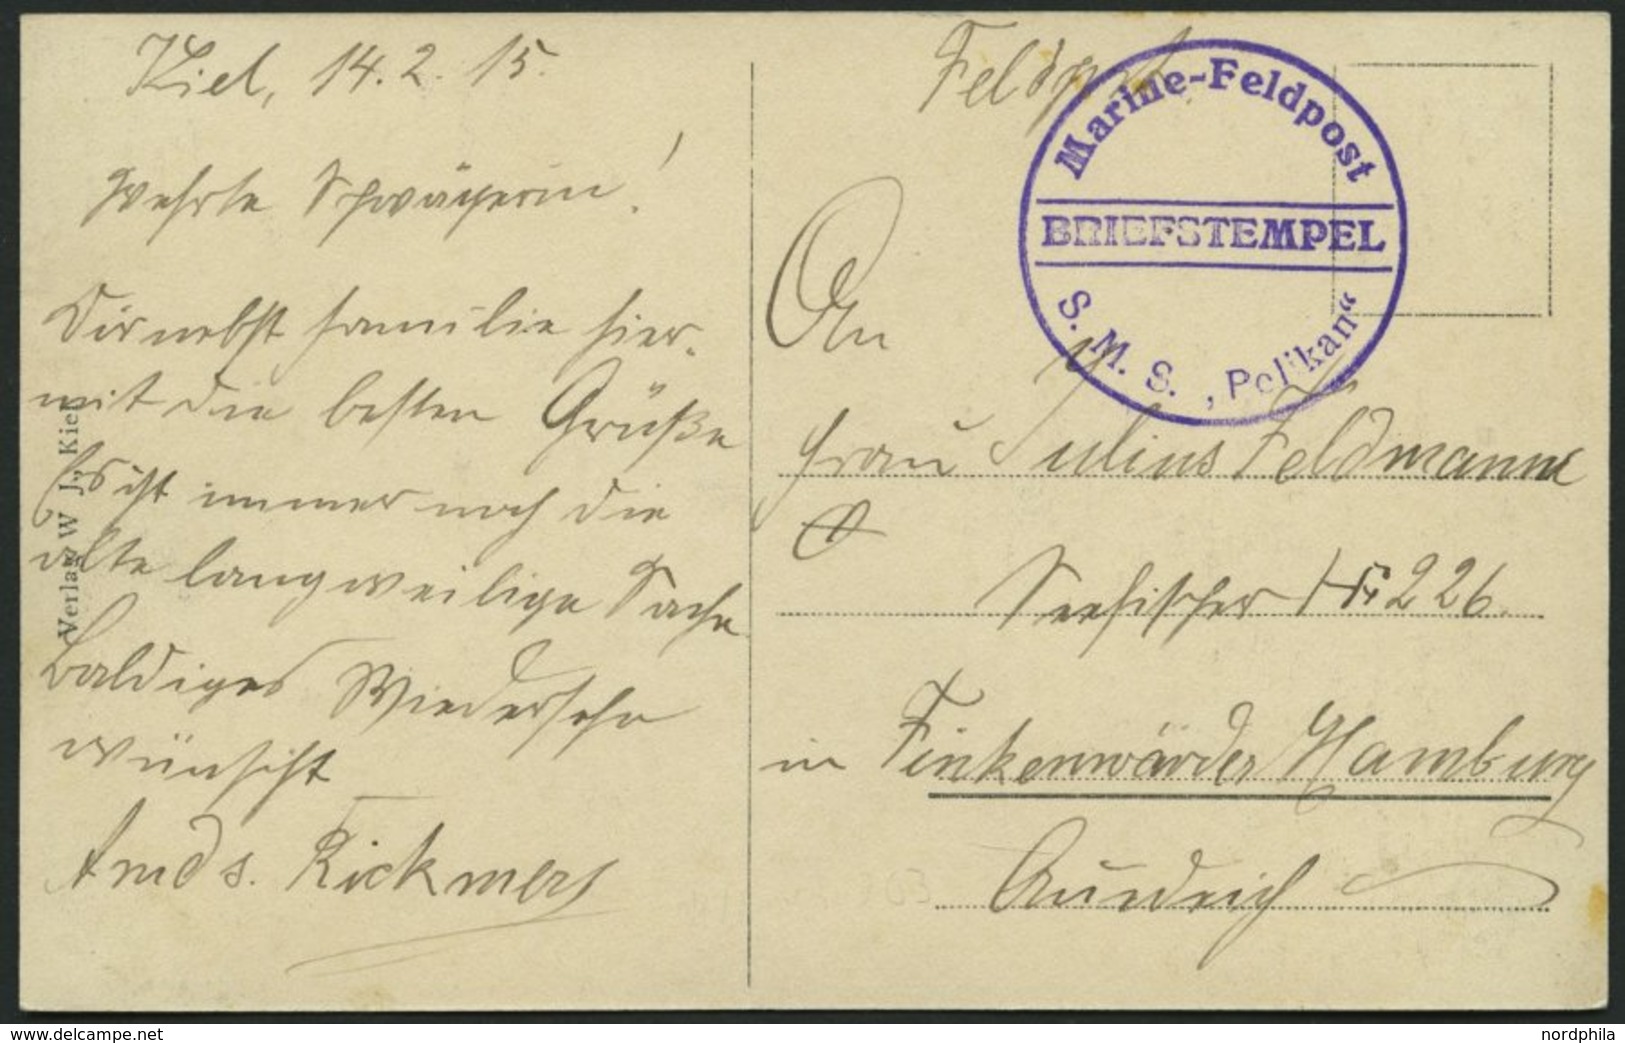 Kiel, 14. 2. 15.
Wehrte Schwägerin!
Dir nebst Familie hier-
mit die besten Grüße
Es ist immer noch die
alte langweilige Sache
baldiges Wiedersehn
wünscht
Amds. Rickmers
Verlag W. J., Kiel
Feldpost
Marine-Feldpost
BRIEFSTEMPEL
S. M. S. „Pelikan“
An
Frau Julius Feldmann
Seefischer Nr 226.
in Finkenwärder Hamburg
Auedeich
www.delcampe.net
nordphila